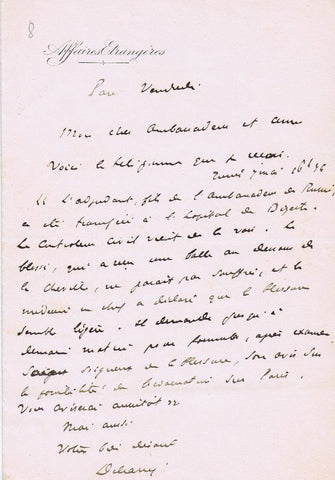 8
Affaires Etrangères
Vendredi
Mon cher Ambassadeur et ami
Voici le télégramme que je reçois.
Tunis 7 mai 16h
"L'adjudant, fils de l'Ambassadeur de Russie,
a été transféré à l'hôpital de Bizerte.
Le Contrôleur Civil vient de le voir. Le
blessé, qui a reçu une balle au dessous de
la cheville, ne paraît pas souffrir, et le
médecin en chef a déclaré que la blessure
semble légère. Il demande jusqu'à
demain matin pour formuler, après examen
soigneux de la blessure, son avis sur
la possibilité de l'évacuation sur Paris.
Vous aviserai aussitôt"
Mai aussi
Votre bien dévoué
Delcassé